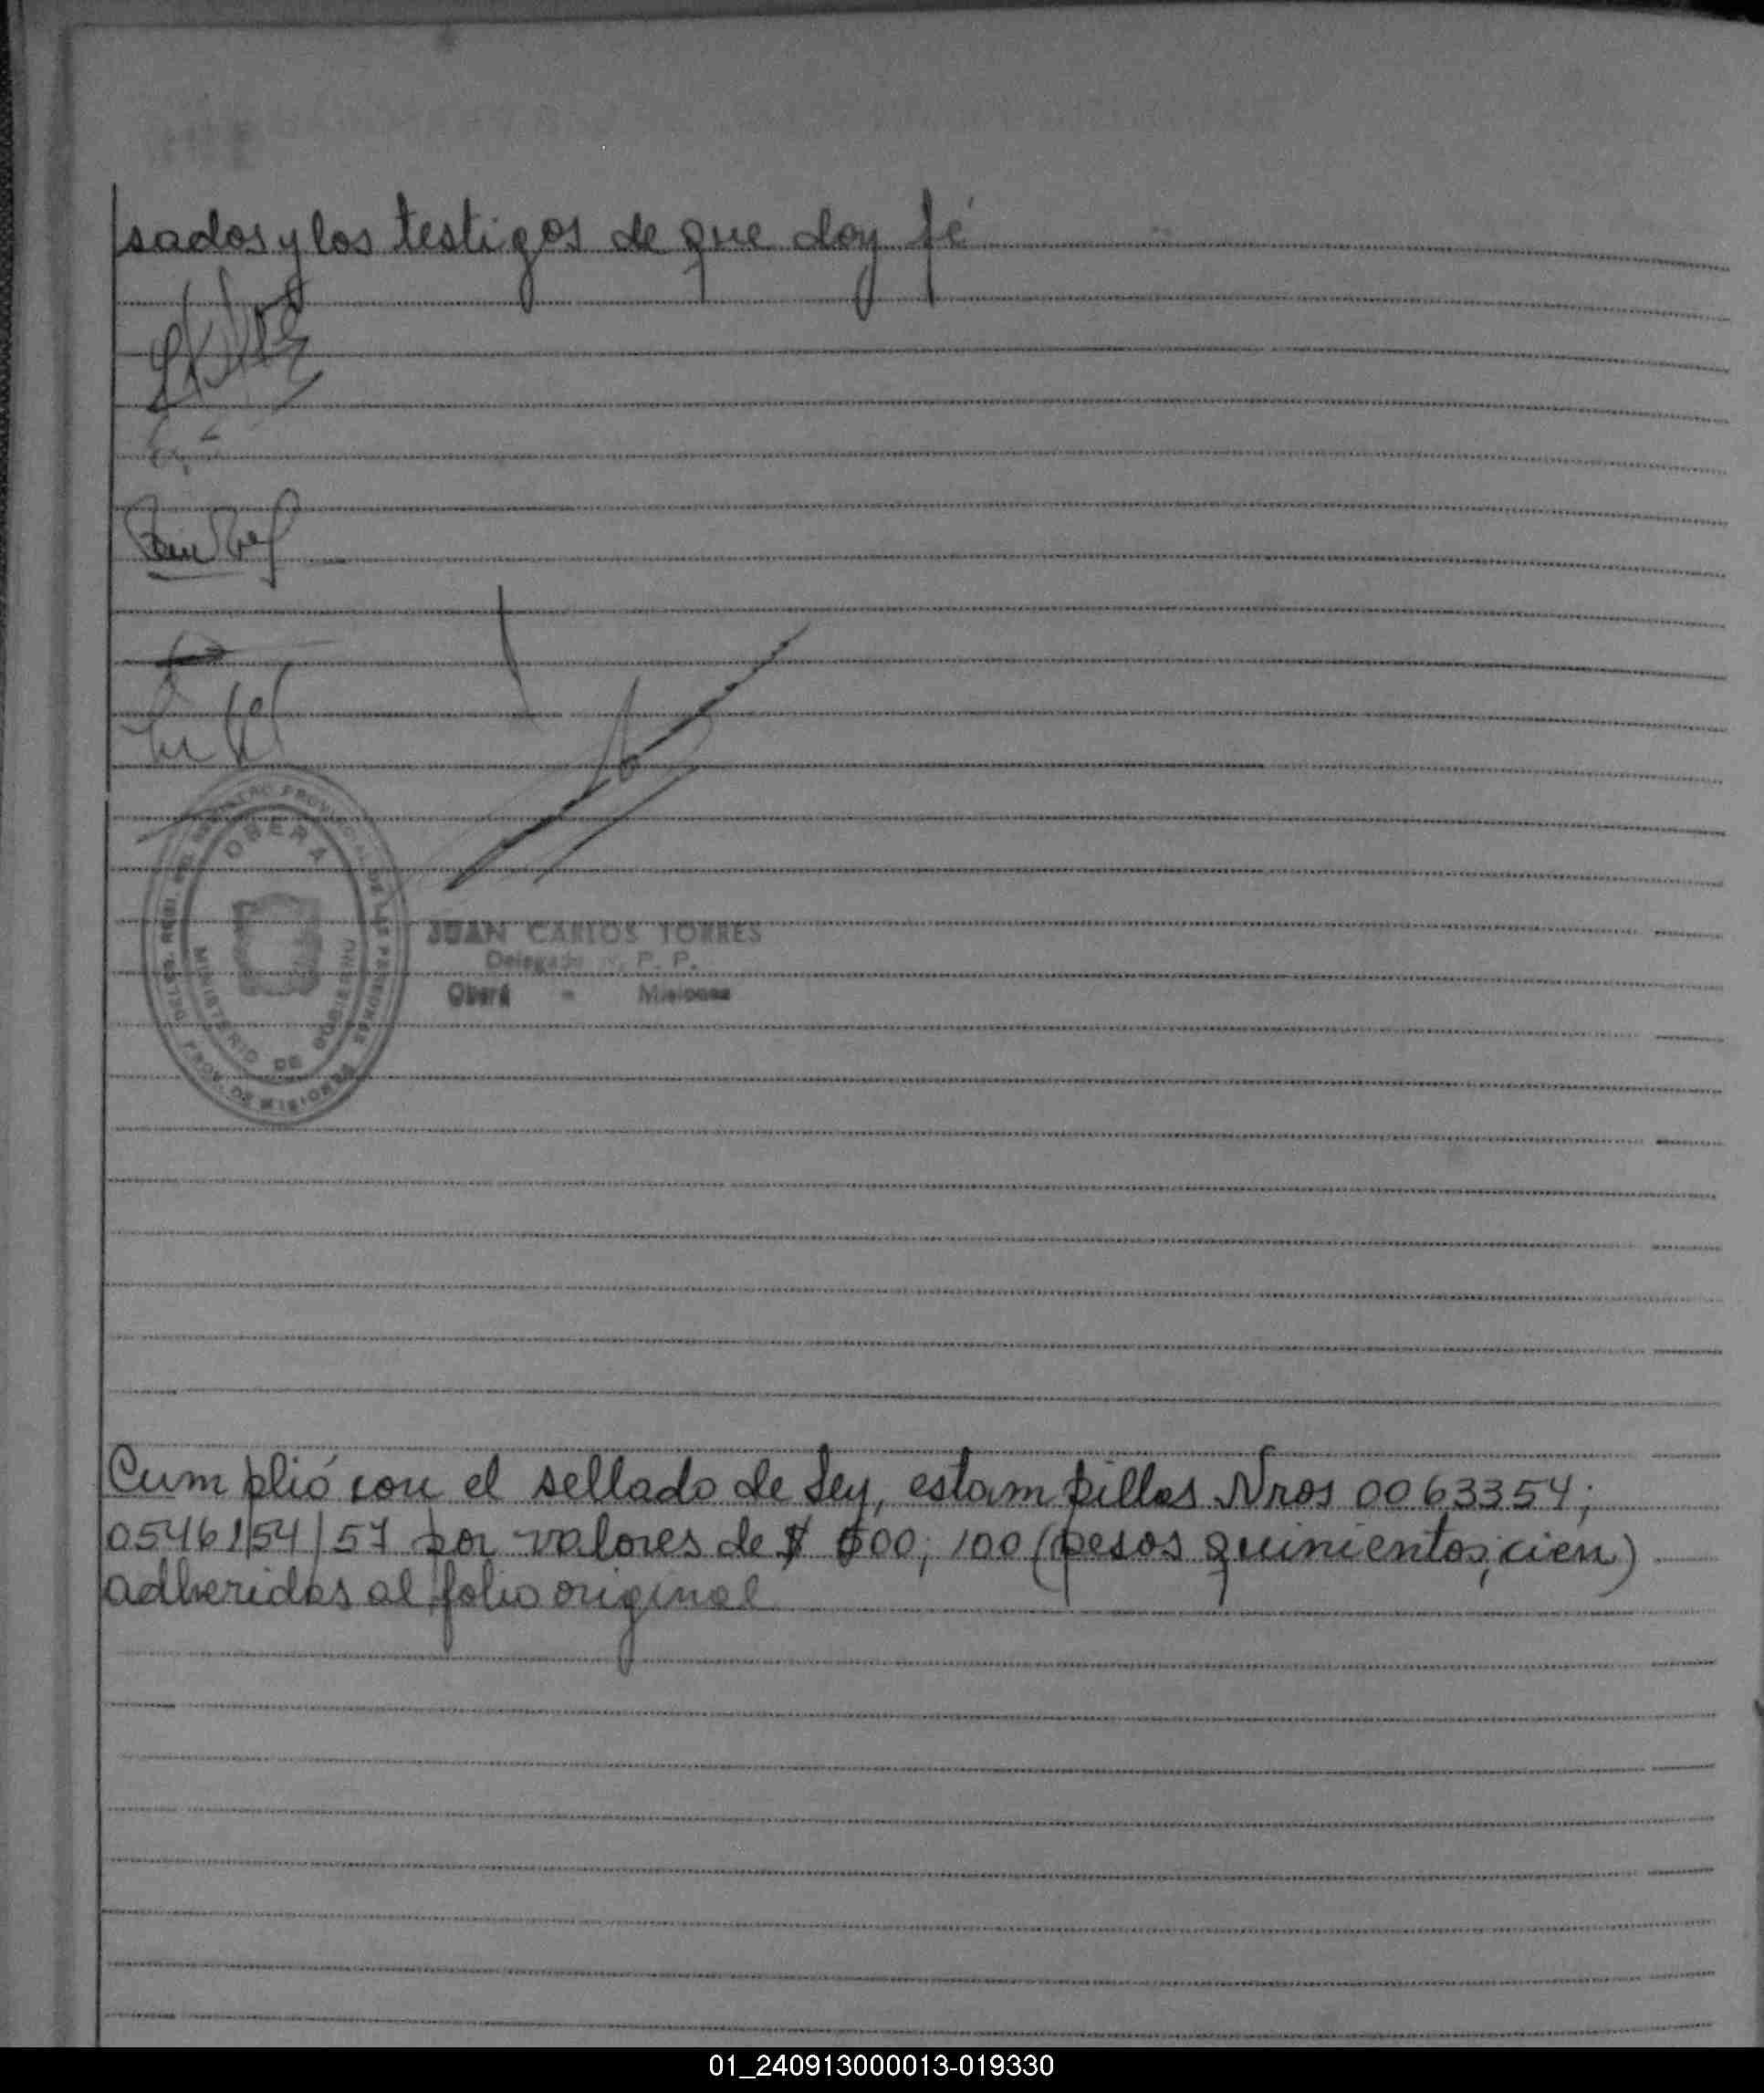 sados y los testigos de que doy fé
OBERA
MINISTERIO DE GOBIERNO
PROV. DE MISIONES
JUAN CARLOS TORRES
Delegado P. P.
Oberá - Misiones
Cumplió con el sellado de Ley, estampillas Nros 0063354;
0546154/57 por valores de $ 500; 100 (pesos quinientos; cien)
adheridas al folio original
01_240913000013-019330